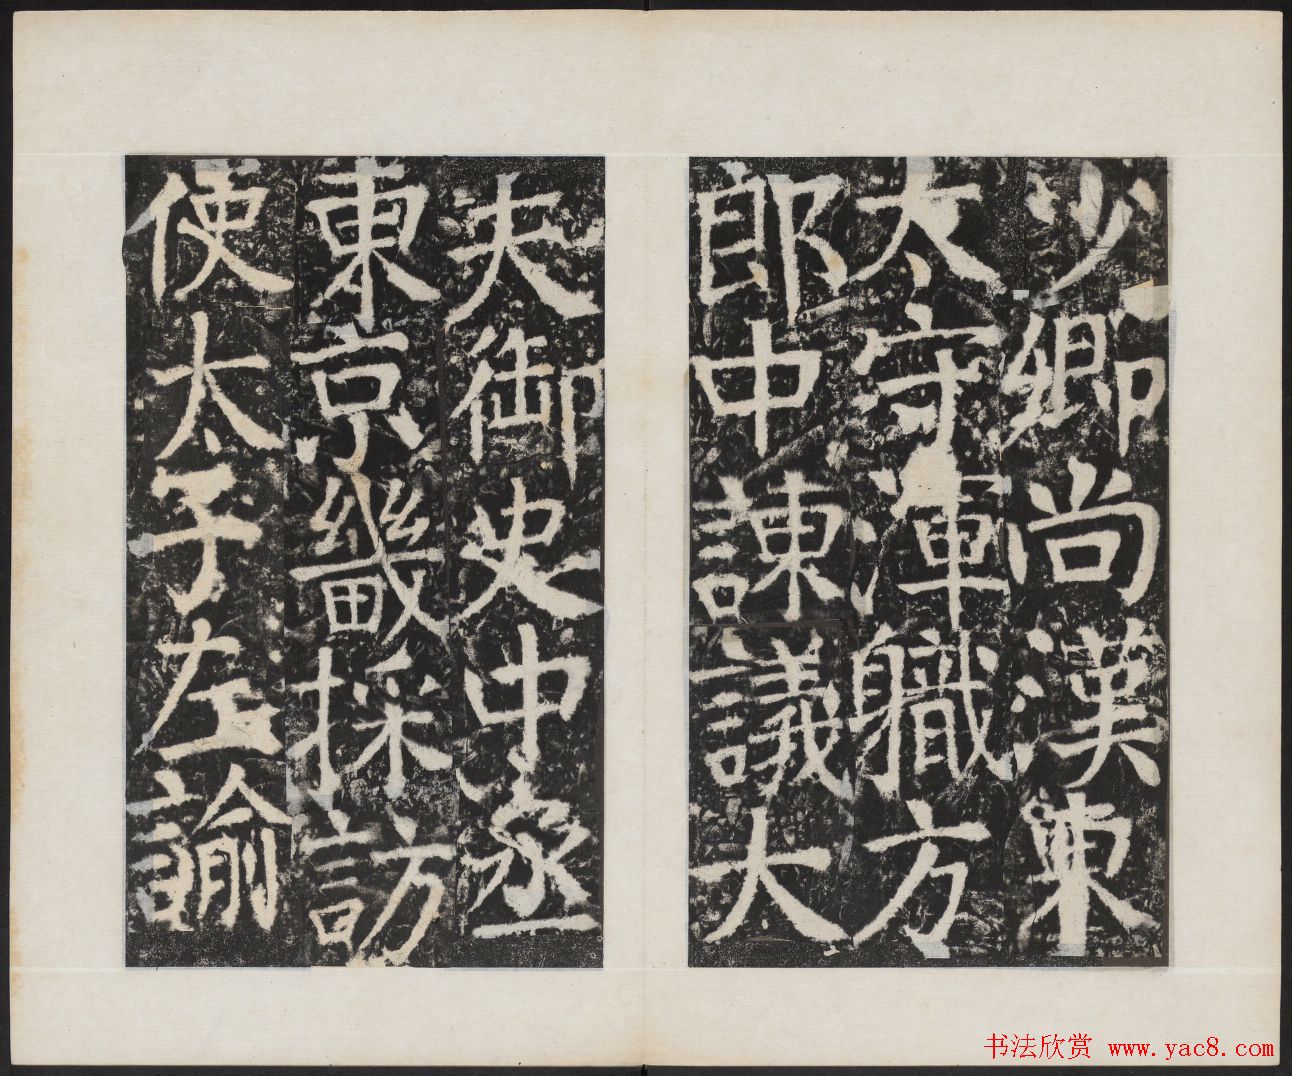 少卿尚漢東
太守渾職方
郎中諫議大
夫御史中丞
東京畿採訪
使太子左諭
书法欣赏 www.yac8.com